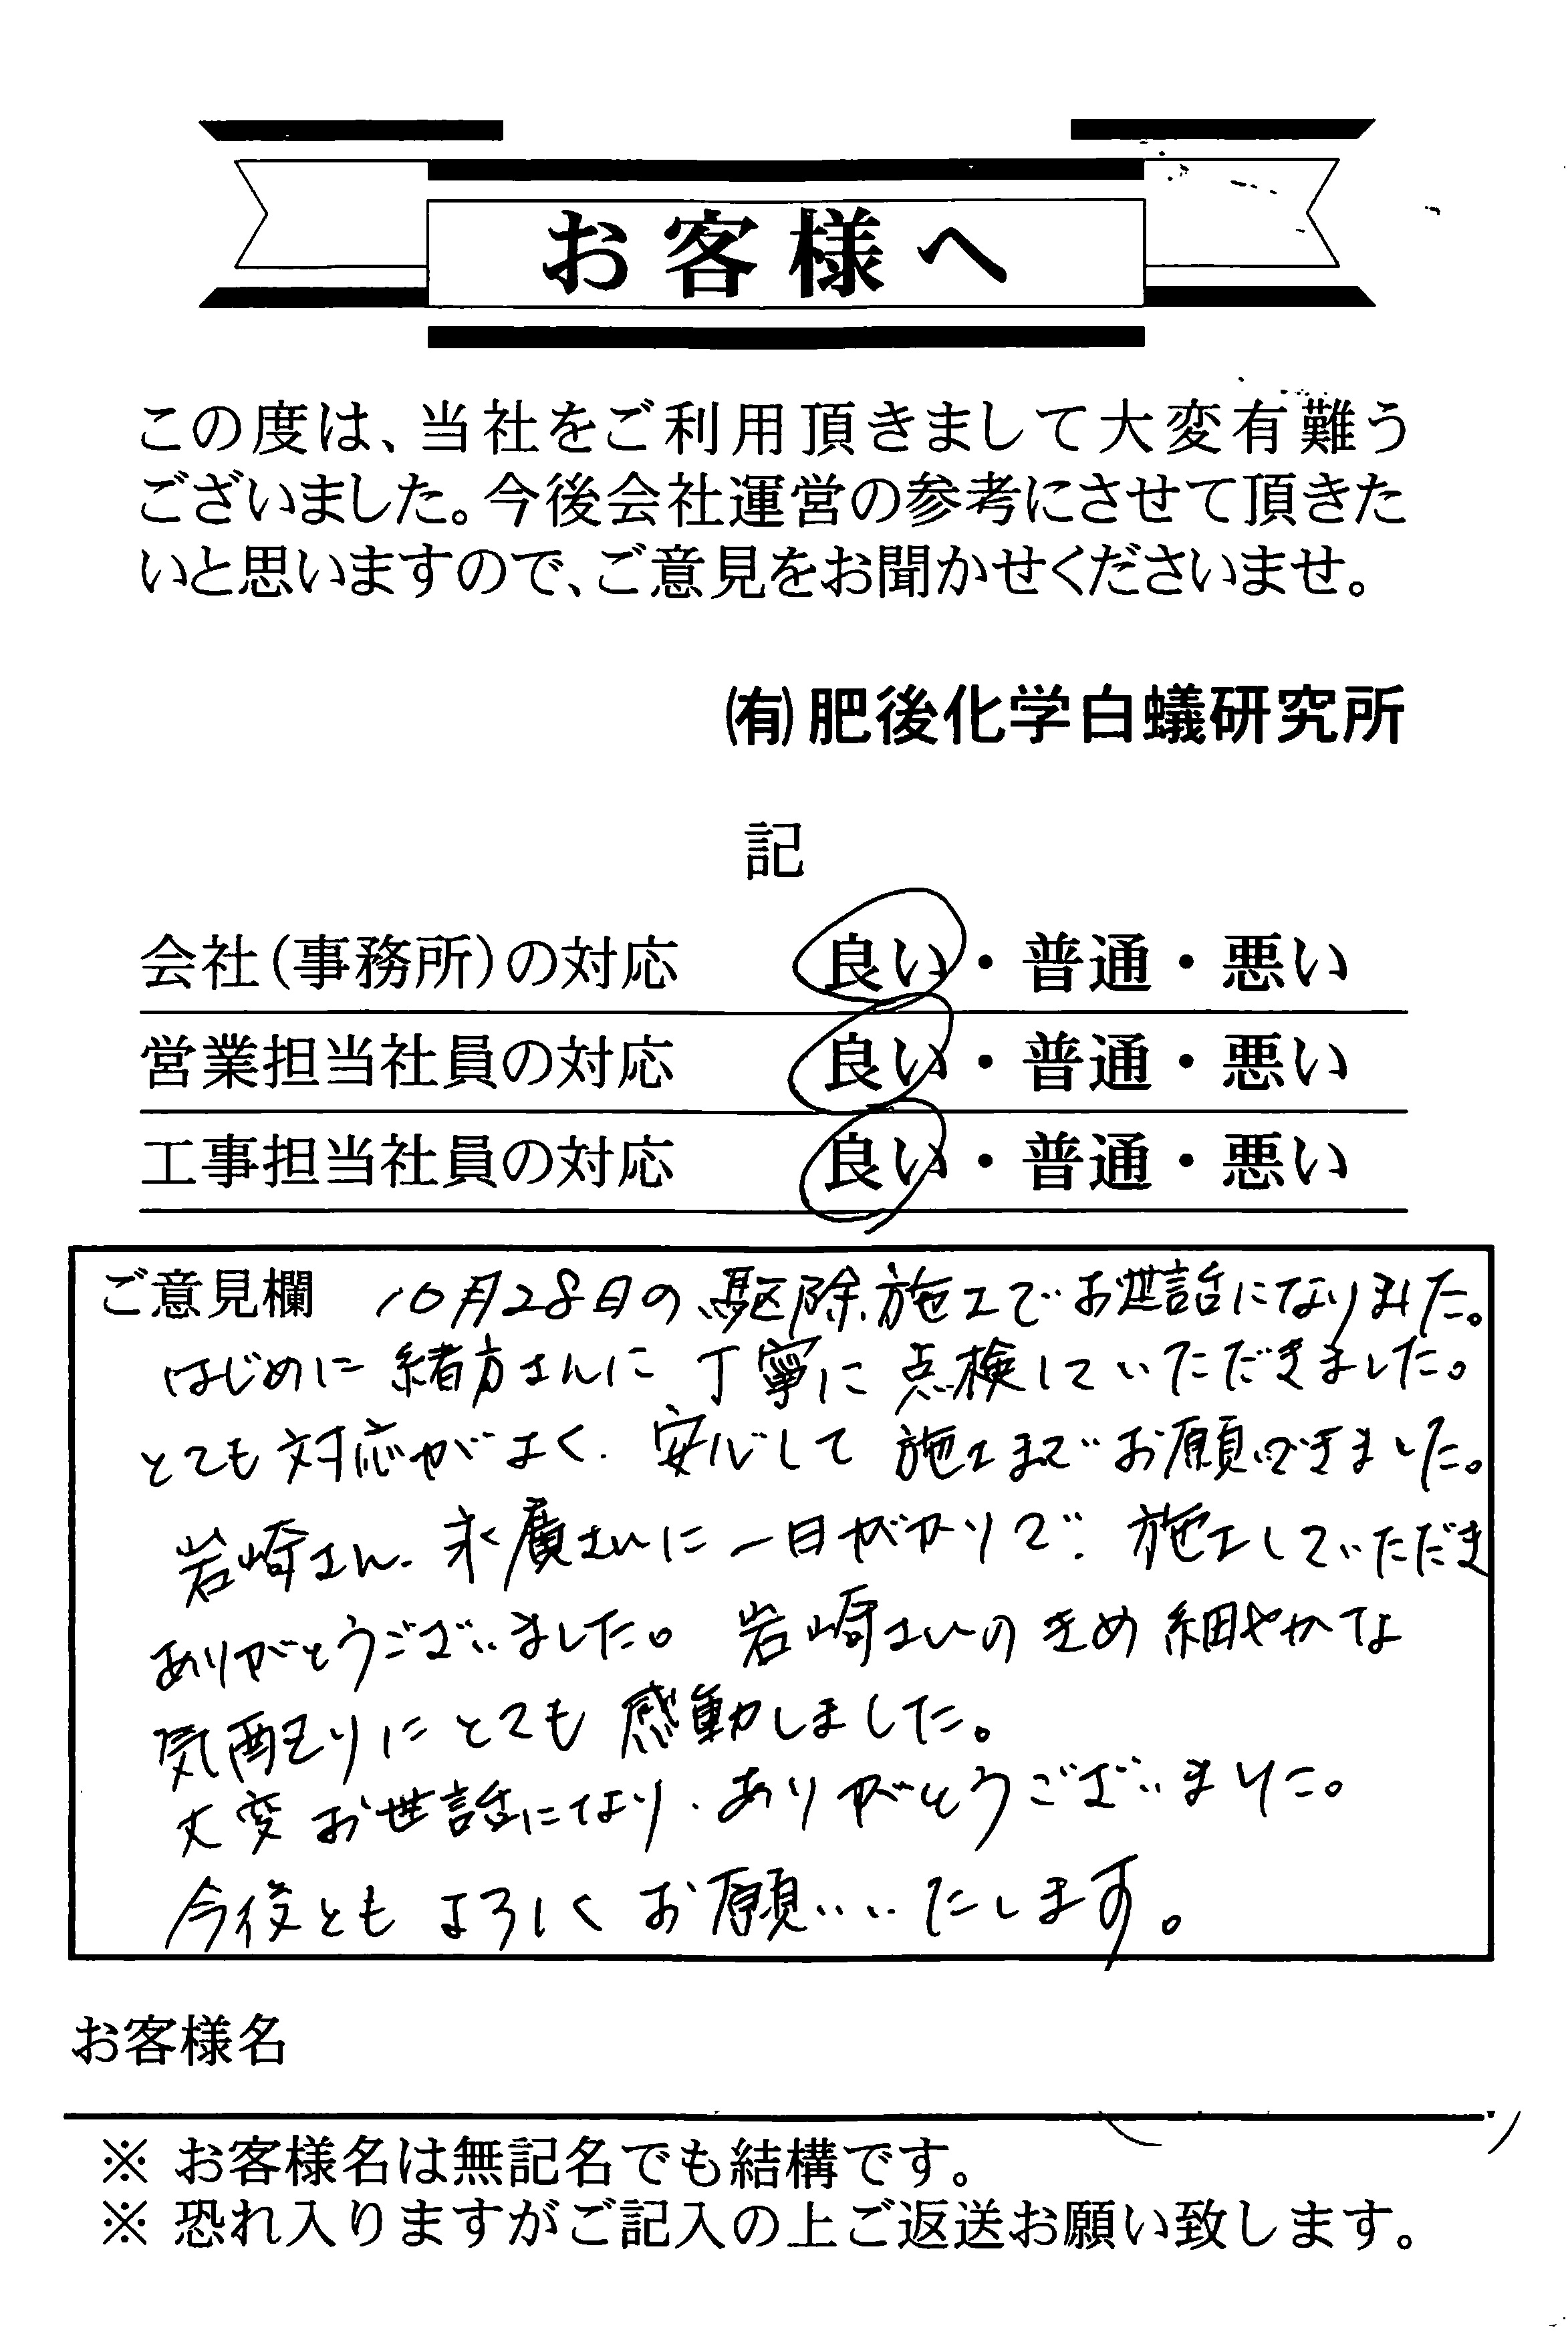 お客様へ
この度は、当社をご利用頂きまして大変有難う
ございました。今後会社運営の参考にさせて頂きた
いと思いますので、ご意見をお聞かせくださいませ。
㈲肥後化学白蟻研究所
記
会社(事務所)の対応 良い・普通・悪い
営業担当社員の対応 良い・普通・悪い
工事担当社員の対応 良い・普通・悪い
ご意見欄 10月28日の駆除施工でお世話になりました。
はじめに緒方さんに丁寧に点検していただきました。
とても対応がよく、安心して施工までお願いできました。
岩崎さん、永廣さんに一日がかりで、施工していただき
ありがとうございました。岩崎さんのきめ細やかな
気配りにとても感動しました。
大変お世話になり、ありがとうございました。
今後ともよろしくお願いいたします。
お客様名
※ お客様名は無記名でも結構です。
※ 恐れ入りますがご記入の上ご返送お願い致します。